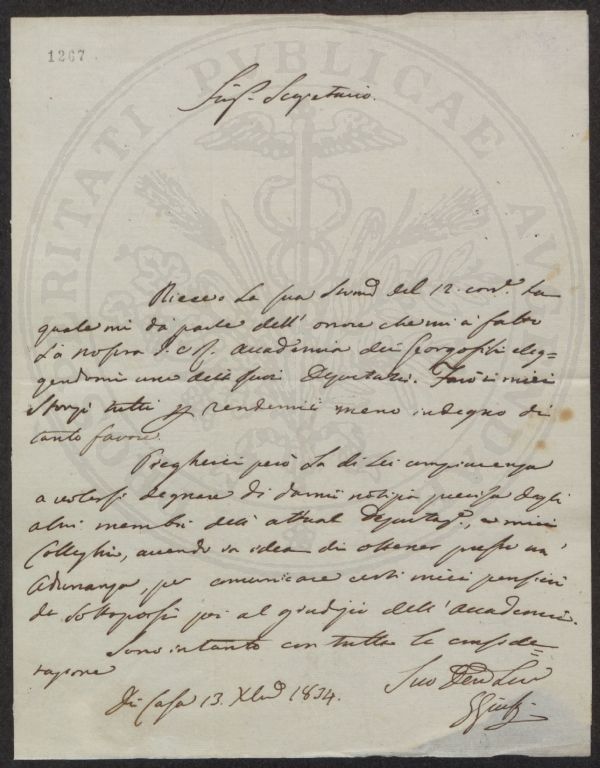 1267
PROSPERITATI PUBLICAE AUGENDAE
Sig.r Segretario.
Ricevo la sua del 12. corr.e la
quale mi dà parte dell' onore che mi à fatto
la nostra I. e R. Accademia dei Georgofili eleg=
gendomi uno dei suoi Deputati. Farò i miei
sforzi tutti p rendermi meno indegno di
tanto favore.
Pregherei però la di Lei compiacenza
a volersi degnare di darmi notizia precisa degli
altri membri dell' attual Deputaz.e, e miei
Colleghi, avendo in idea di ottener presto un'
Adunanza, per comunicare certi miei pensieri
da sottoporsi poi al giudizio dell' Accademia.
Sono intanto con tutta la conside=
razione
Di Casa 13. Xbre 1834.
Suo Dev.